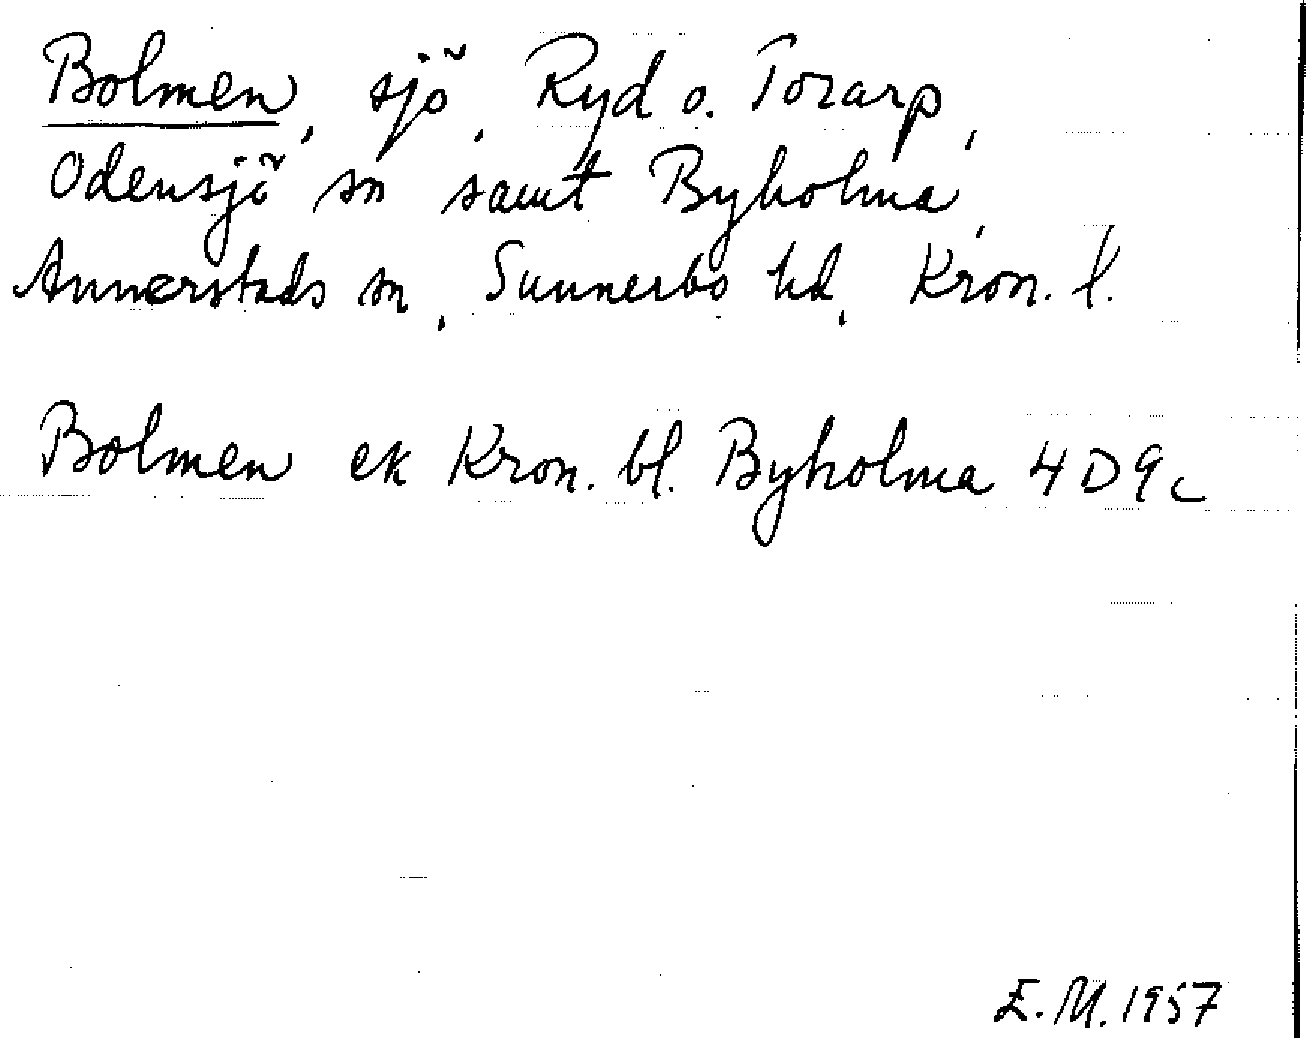 Bolmen, sjö, Ryd o. Torarp,
Odensjö sn samt Byholma,
Annerstads sn, Sunnerbo hd, Kron. l.
Bolmen ek Kron. bl. Byholma 4D9c
E.M. 1957